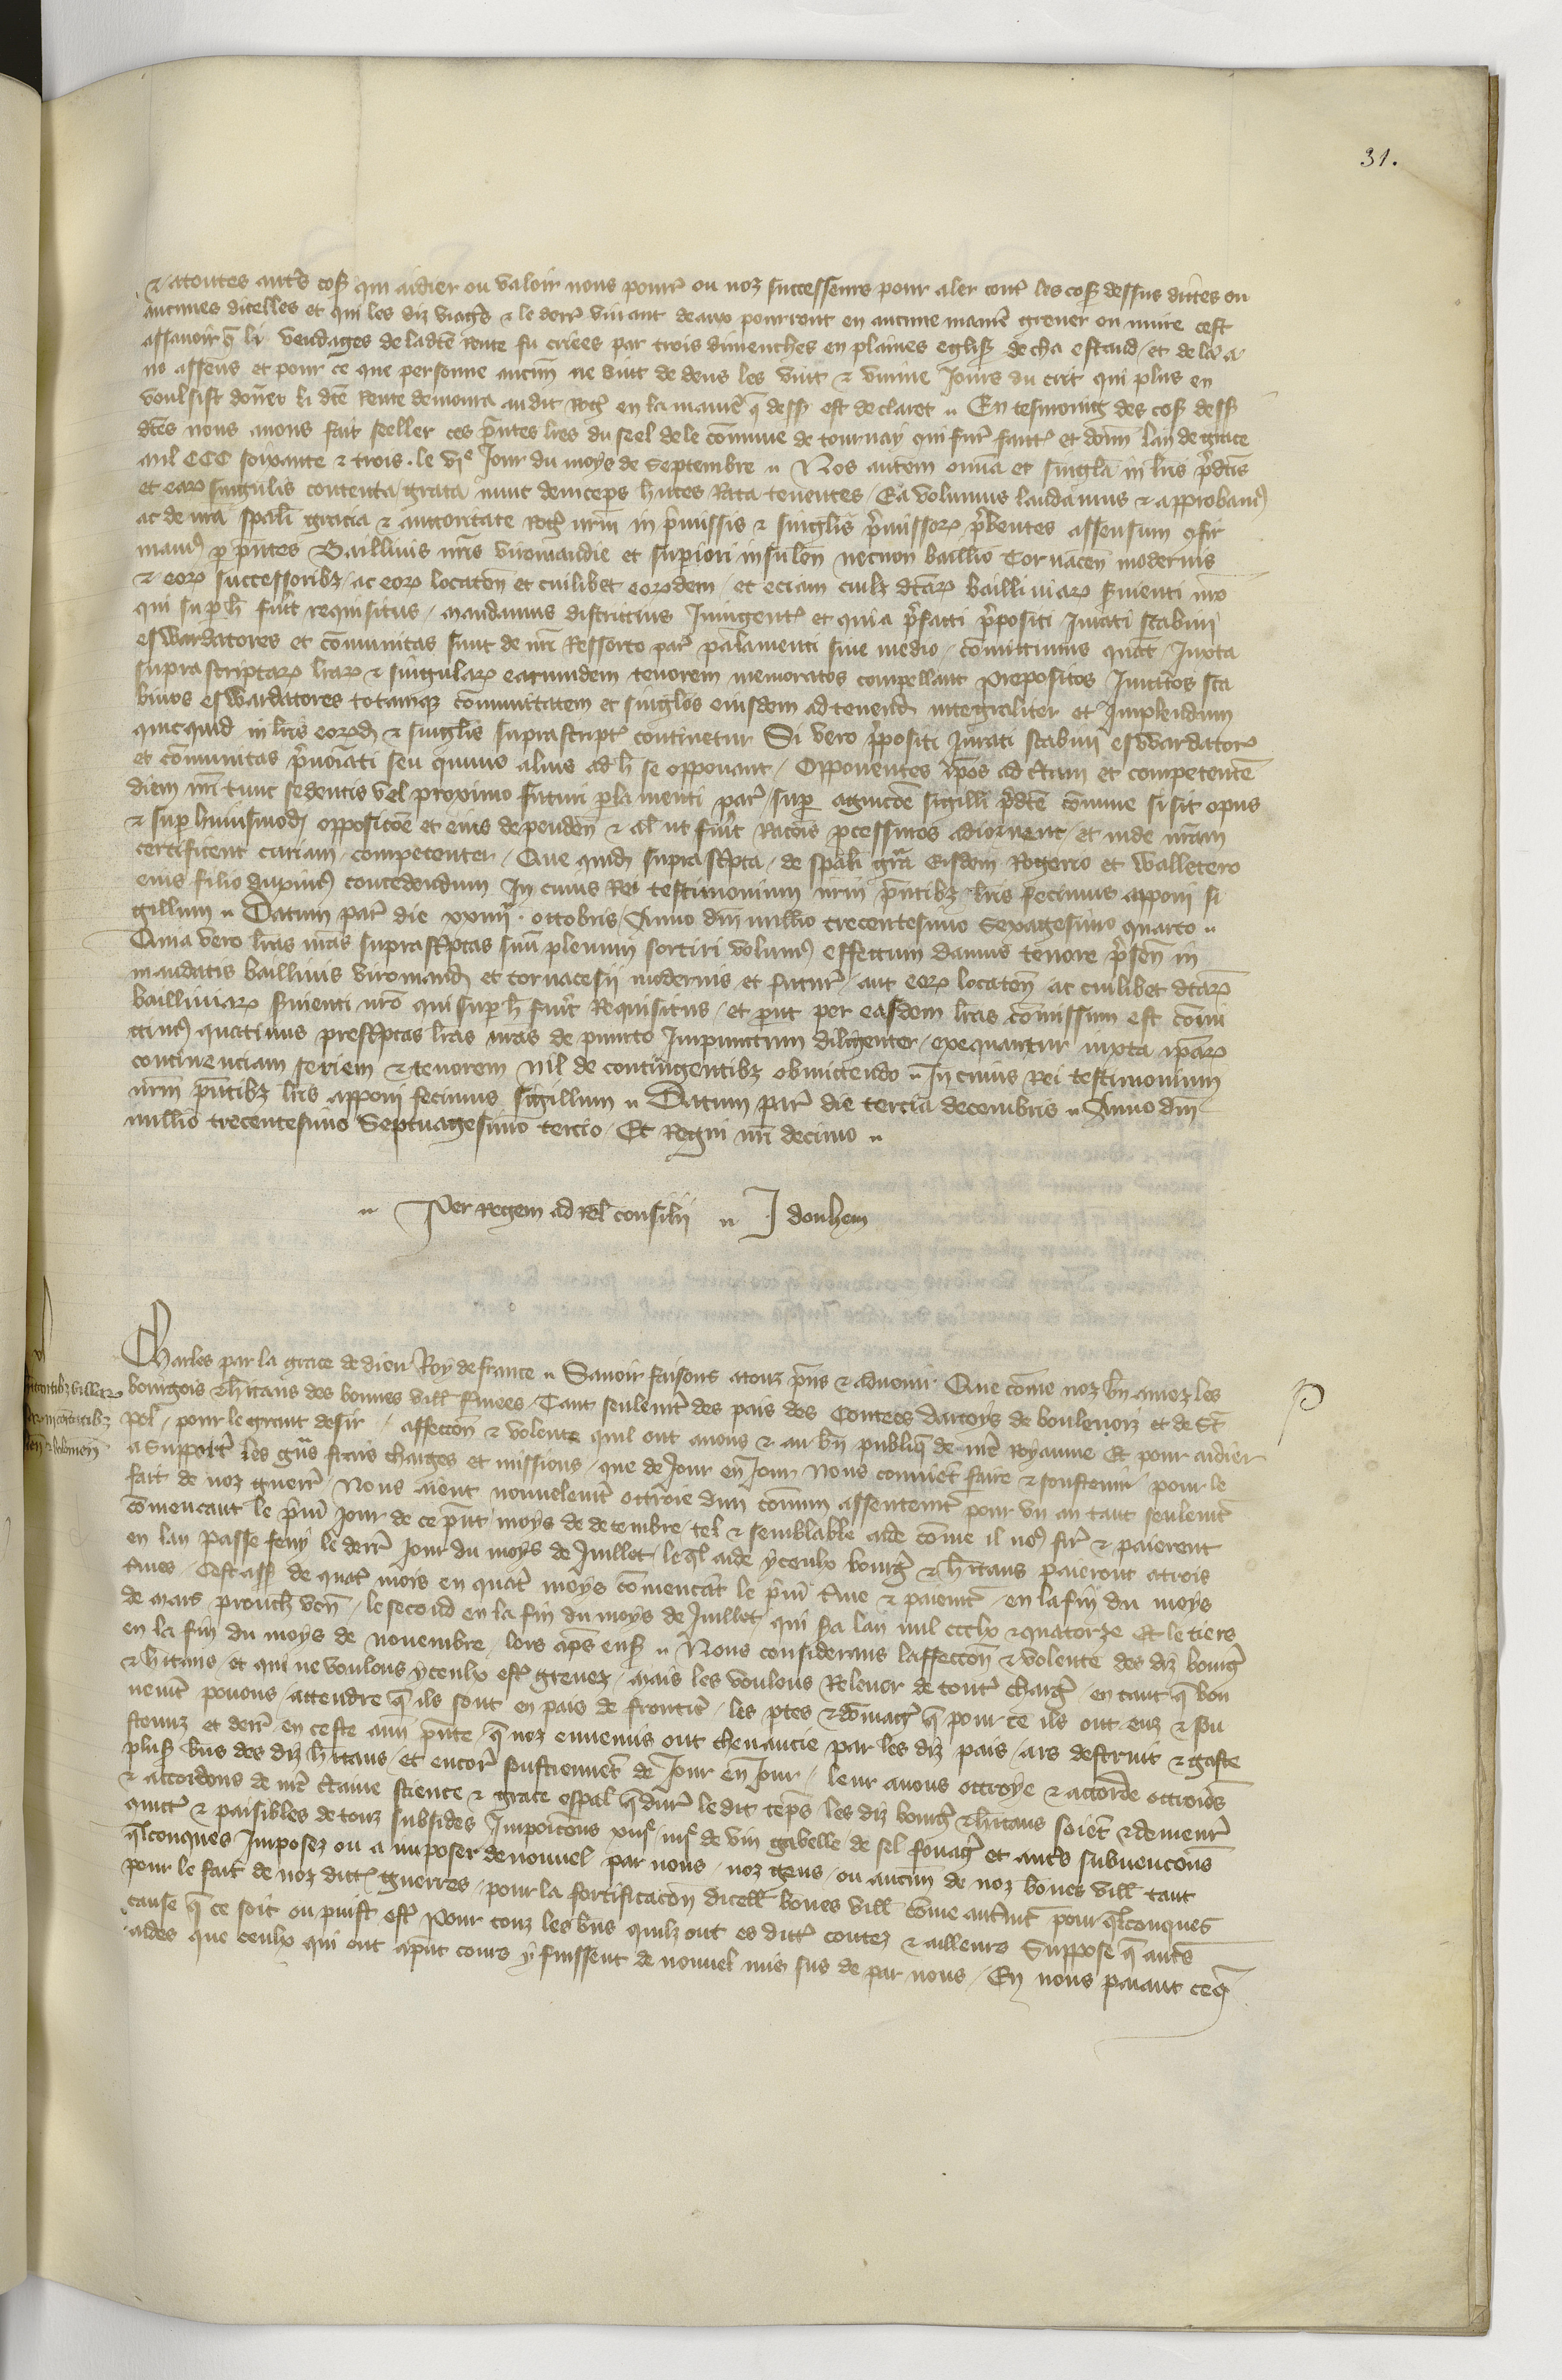 31.
⁊ atoutes autˢ cosꝭ qui aidier ou valoir nous pourͬ ou noz successeurs pour aler contˢ les cosꝭ dessus dictes ou
aucunes dicelles et qui les diz viagˢ ⁊ le derrˢ viuant deaux pourront en aucune manieˢ greuer ou nuire cest
assauoir q̄ li vendages de ladcē Rente fu criees par trois dimenches en plaines eglisꝭ de cha escaud / et de la a
no assens et pour ce que personne aucun̄ ne vint de dens les vint ⁊ vn̄ine Jours du crit qui plus en
voulsist don̄er li dcē Rente demoura audit Rogˢ en la manieˢ q̄ dessꝭ est declaret ·· En tesmoing des cosꝭ dessꝭ
dcēs nous auons fait seeller ces p̄ntes lr̄es du seel de le com̄une de tournay qui furˢ faitˢ et don̄ lan de grace
mil CCC soixante ⁊ trois . le vjᵉ Jour du moys de Septembre ·· Nos autem om̄ia et singlā in lr̄is p̄dc̄is
et earꝝ singulis contenta / grata nunc deinceps hn̄tes Rata tenentes / Ea volumus laudamus ⁊ approbamꝰ
ac de nr̄a spāli gracia ⁊ auctoritate Regˢ nr̄m in p̄missis ⁊ singlis p̄missorꝝ p̄bentes assensum ꝯfir
mamꝰ ꝑ p̄ntes Bailliuis nr̄is viromandie et superiori insulen̄ necnon bailliuo Tornacen̄ modernis
⁊ eorꝝ successoribꝫ / ac eorꝝ locaten̄ et cuilibet eorūdem / et eciam cuilꝫ dcārꝝ bailliuiarꝝ s̄uienti nr̄o
qui suꝑ h̄ fūit requisitus / mandamus districtius Iniungentˢ et quia p̄fatti p̄positi Jurati scabini
eswardatores et com̄unitas sunt de nr̄i Ressorto parˢ parlamenti sine medio / com̄ittimus quat̄ / Iuxta
suprascriptarꝝ lr̄arꝝ ⁊ singularꝝ earumdem tenorem memoratos compellant Prepositos Juratos sca
binos eswardatores totamqꝫ com̄unitatem et singlōs eiusdem ad tenend̄ integraliter et Implendum
quicquid in lr̄is eorūdꝭ ⁊ singlis suprascriptˢ continetur Si vero p̄positi Jurati scabini eswardatorˢ
et com̄unitas p̄noīati seu quiuis alius ad h̄ se opponant / Opponentes ip̄os ad c̄tam et competentē
diem nr̄i tunc sedentis vel proximo futuri ꝑlamenti parˢ suꝑ agnicōe sigilli p̄dc̄e com̄une si sit opus
⁊ suꝑ huiusmodꝭ oppositōe et eius dependen̄ ⁊ al̄ ut fūit Racōis ꝓcessuros adiornent / et inde nr̄am
certificent curiam / competenter / Que quidꝭ suprasc̄pta / de spāli grā Eisdem Rogero et Walletero
eius filio duximꝰ concedendum In cuius Rei testimonium nr̄m p̄ntibꝫ lr̄is fecimus apponi si
gillum ·· Datum parˢ die xxiiijᵃ . octobris / Anno dn̄i millio trecentesimo Sexagesimo quarto ··
Quia vero lr̄as nr̄as suprasc̄ptas suū plenum sortiri volumꝰ effectum damus tenore p̄sen̄ in
mandatis bailliuis viromandꝭ et tornacesij modernis et futurˢ / aut eorꝝ locaten̄ ac cuilibet dcārꝝ
bailliuiarꝝ s̄uienti nr̄o qui suꝑ h̄ fūit Requisitus / et put per easdem lr̄as com̄issum est com̄i
ttimꝰ quatinus presc̄ptas lr̄as nr̄as de puncto Inpunctum diligenter / exequantur iuxta ip̄arꝝ
continenciam seriem ⁊ tenorem nil de contingentibꝫ obmittendo ·· In cuius Rei testimonium
nr̄m p̄ntibꝫ lr̄is apponi fecimus sigillum ·· Datum parˢ die tercia decembris ·· Anno dn̄i
millio trecentesimo Septuagesimo tercio / Et Regni nr̄i decimo ··
·· Per regem ad rel̄ consilij ·· J douhem
Charles par la grace de dieu Roy de france ·· Sauoir faisons atouz p̄ns ⁊ aduenir · Que com̄e noz bn̄ amez les
bourgois ⁊ h̄itans des bonnes vill̄ fermees / Tant seulem̄t des pais des Contees dartoys de boulenoiz et de St̄
pol / pour le grant desir / affeccōn ⁊ volente quil ont anous ⁊ au bn̄ publiq̄ de nr̄e Royaume Et pour aidier
a Supportˢ les gn̄s frais charges et missions / que de Jour en Jour Nous conuiēt faire ⁊ soustenir / pour le
fait de noz guerrˢ / Nous aient nouuelem̄t ottroie dun com̄un assentem̄t pour vn an tant seulem̄t
com̄encant le p̄mˢ Jour de ce p̄nt moys de decembre / tel ⁊ semblable aide com̄e il noꝰ firˢ ⁊ paierent
en lan passe feny le derrˢ jour du moys de Juillet / leql̄ aide yceulx bourgˢ ⁊ h̄itans paieront atrois
t̄mes / Cest assꝭ de quatˢ mois en quatˢ moys com̄encāt le p̄mˢ t̄me ⁊ paiem̄t / en la fin du moys
de mars prouch̄ ven̄ / le second en la fin du moys de Juillet / qui sˢa lan mil ccclx ⁊ quatorze Et le tiers
en la fin du moys de nouembre / lors ap̄s ensꝭ ·· Nous considerans laffeccōn ⁊ volente des diz bourgˢ
⁊ h̄itans / et qui ne voulons yceulx estˢ greuez / mais les voulons Releuer de toutˢ chargˢ / en tant q̄ bon
nem̄t pouons / attendre q̄ ils sont en pais de frontieˢ / les ꝑtes ⁊ dom̄agˢ q̄ pour ce ils ont euz ⁊ sou
stenuz et derrˢ en ceste ann̄ p̄nte / q̄ noz ennemis ont cheuaucie par les diz pais / ars destruit ⁊ gaste
plusꝭ bn̄s des diz h̄itans / et encorˢ soustiennēt de Jour en Jour / leur auons ottroye ⁊ accorde ottroiōs
⁊ accordons de nr̄e c̄taine science ⁊ grace esp̄al q̄ durˢ ledit tep̄s les diz bourgˢ ⁊ h̄itans soiēt ⁊ demeurˢ
quictˢ ⁊ paisibles de touz subsides Impoicōns xiijᵉ / iiijᵉ de vin gabelle de sel fouagˢ et autˢs subuencōns
ql̄conques Imposez ou a imposer de nouuel par nous / noz gens / ou aucun̄ de noz bones vill̄ tant
pour le fait de noz dittˢ guerres / pour la fortificacōn dicell̄ bones vill̄ com̄e autrem̄t pour ql̄conques
cause q̄ ce soit ou puist estˢ Pour touz les bn̄s quilz ont es dittˢ contez ⁊ ailleurs Suppose q̄ autˢs
aides que ceulx qui ont ap̄nt cours y fuissent de nouuel mis sus de par nous / En nous paiant ceq̄